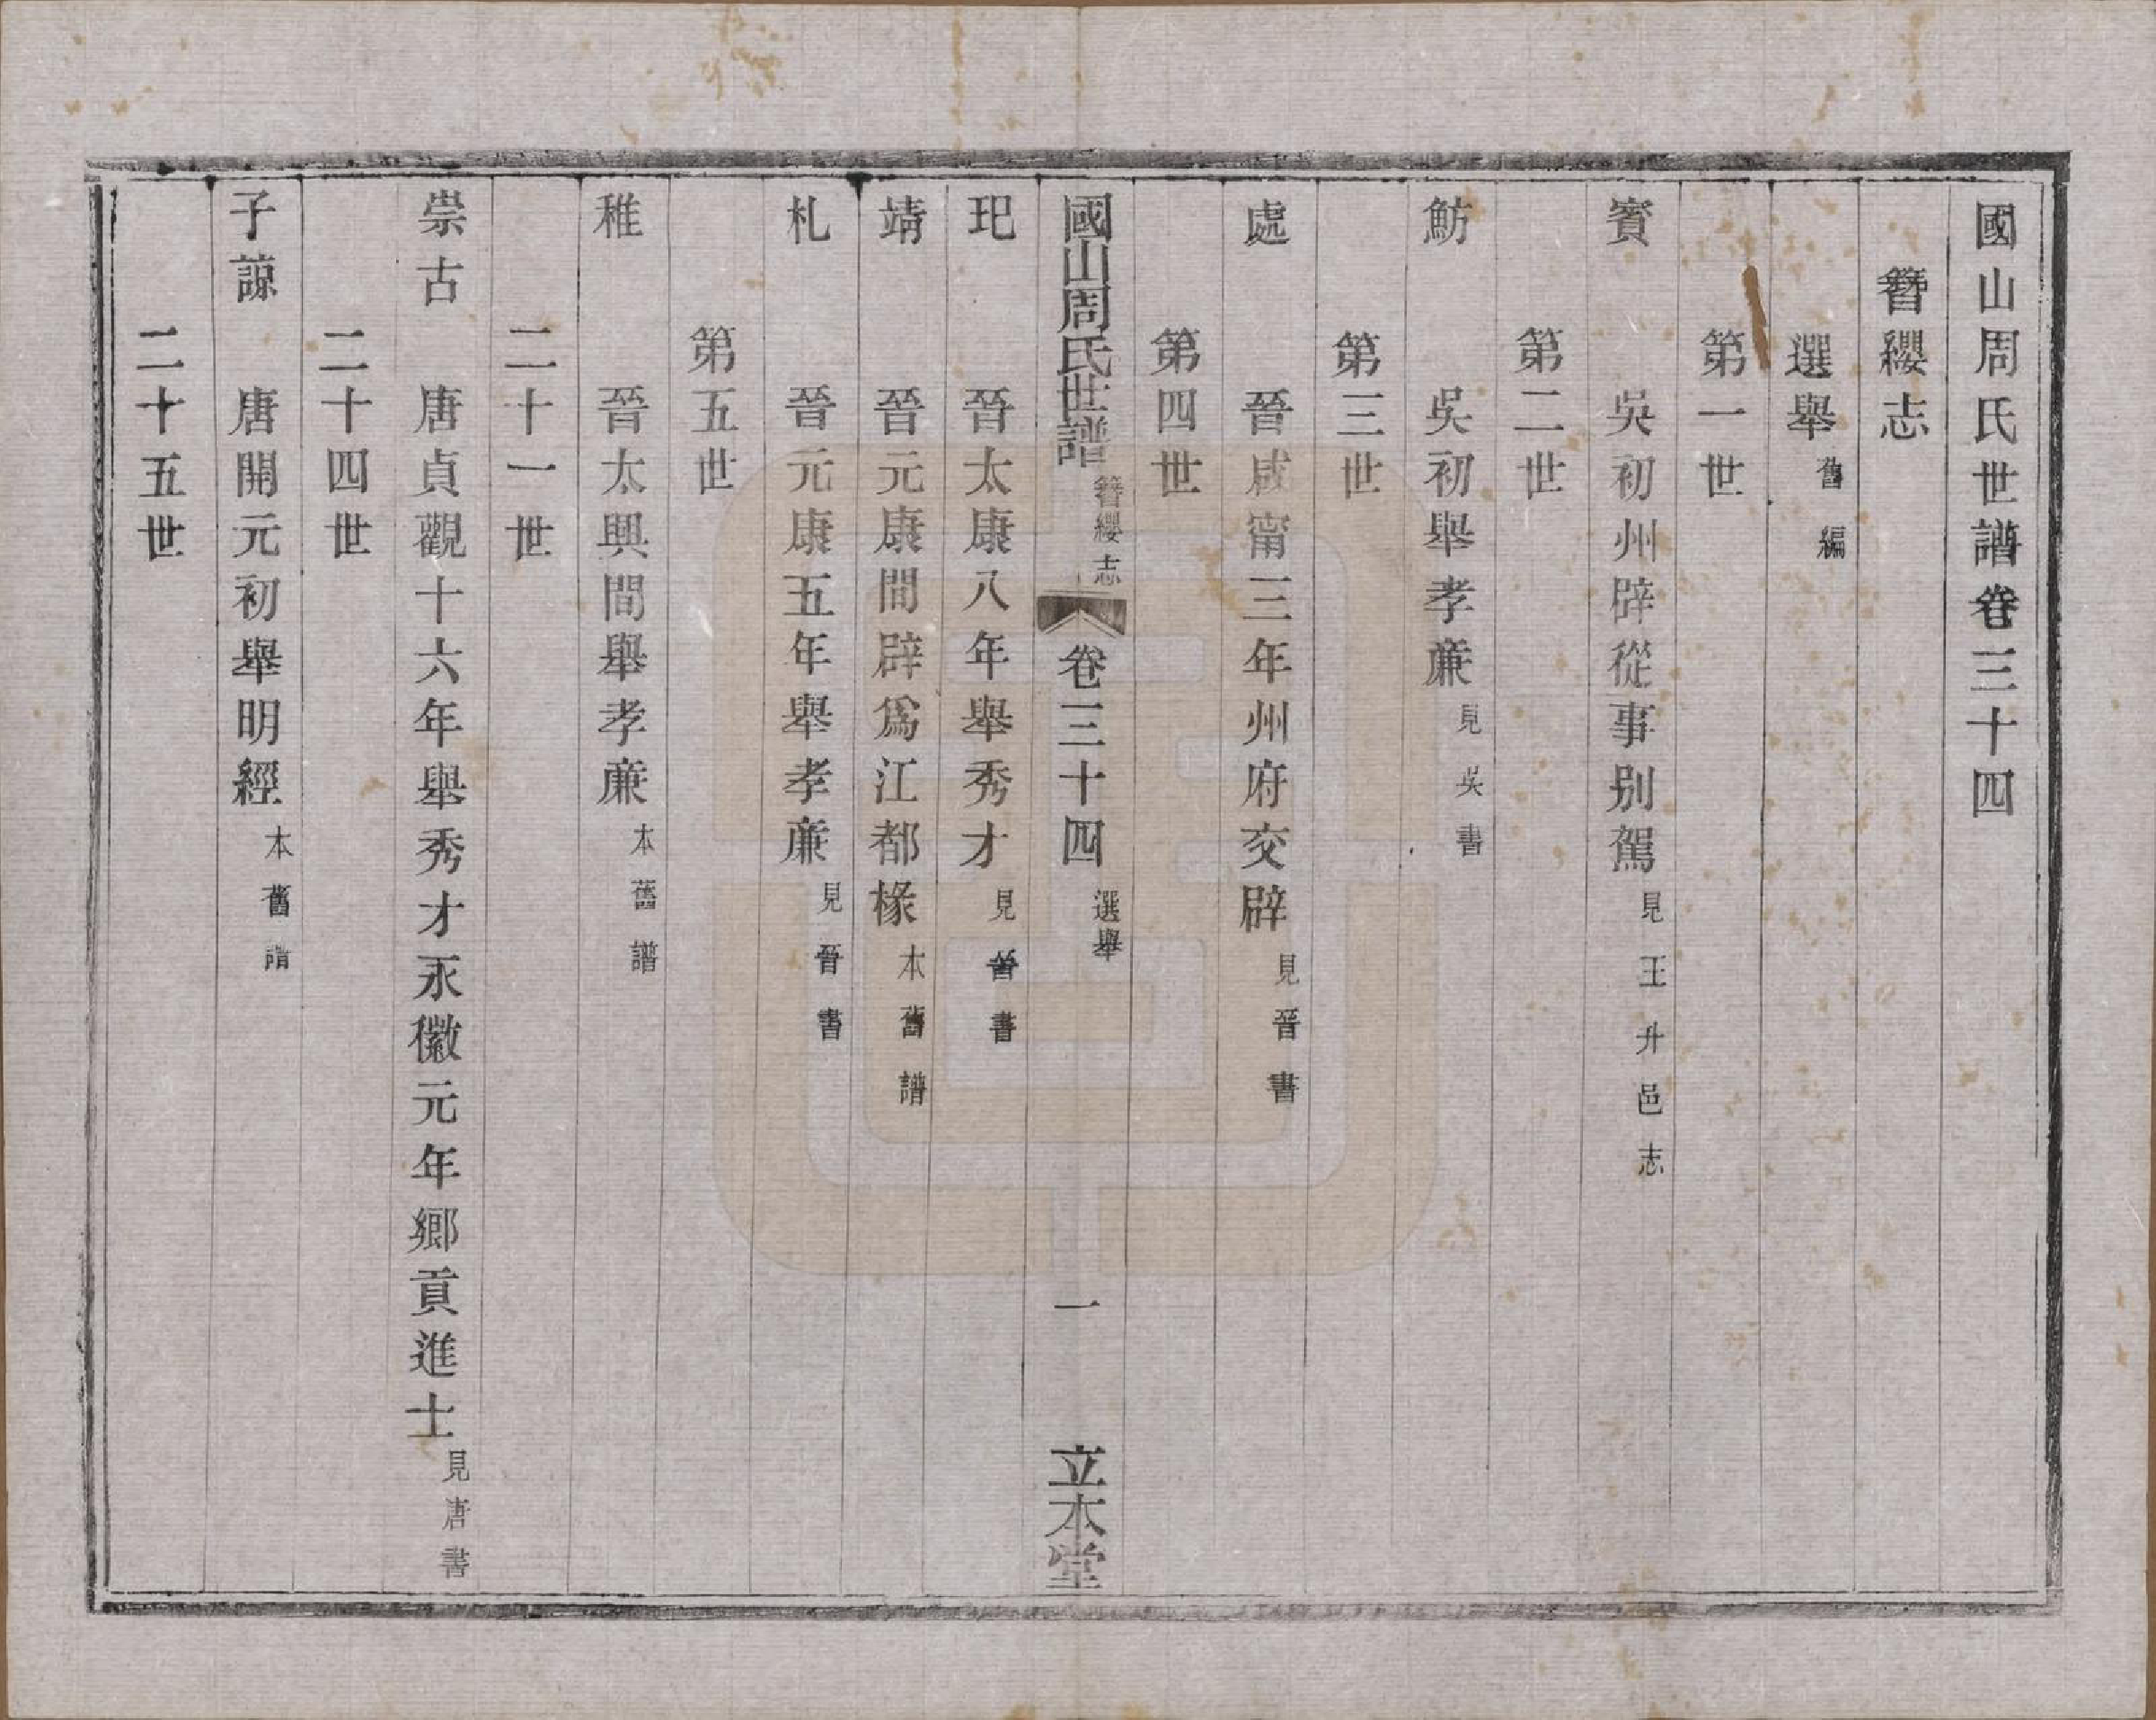 國山周氏世譜卷三十四
簪纓志
選舉 舊編
第一世
賓 吳初州辟從事别駕 見王升邑志
第二世
魴 吳初舉孝廉 見吳書
第三世
處 晉咸甯三年州府交辟 見晉書
第四世
國山周氏世譜 簪纓志 卷三十四 選舉 一 立本堂
玘 晉太康八年舉秀才 見晉書
靖 晉元康間辟爲江都椽 本舊譜
札 晉元康五年舉孝廉 見晉書
第五世
稚 晉太興間舉孝廉 本舊譜
二十一世
崇古 唐貞觀十六年舉秀才永徽元年鄉貢進士 見唐書
二十四世
子諒 唐開元初舉明經 本舊譜
二十五世